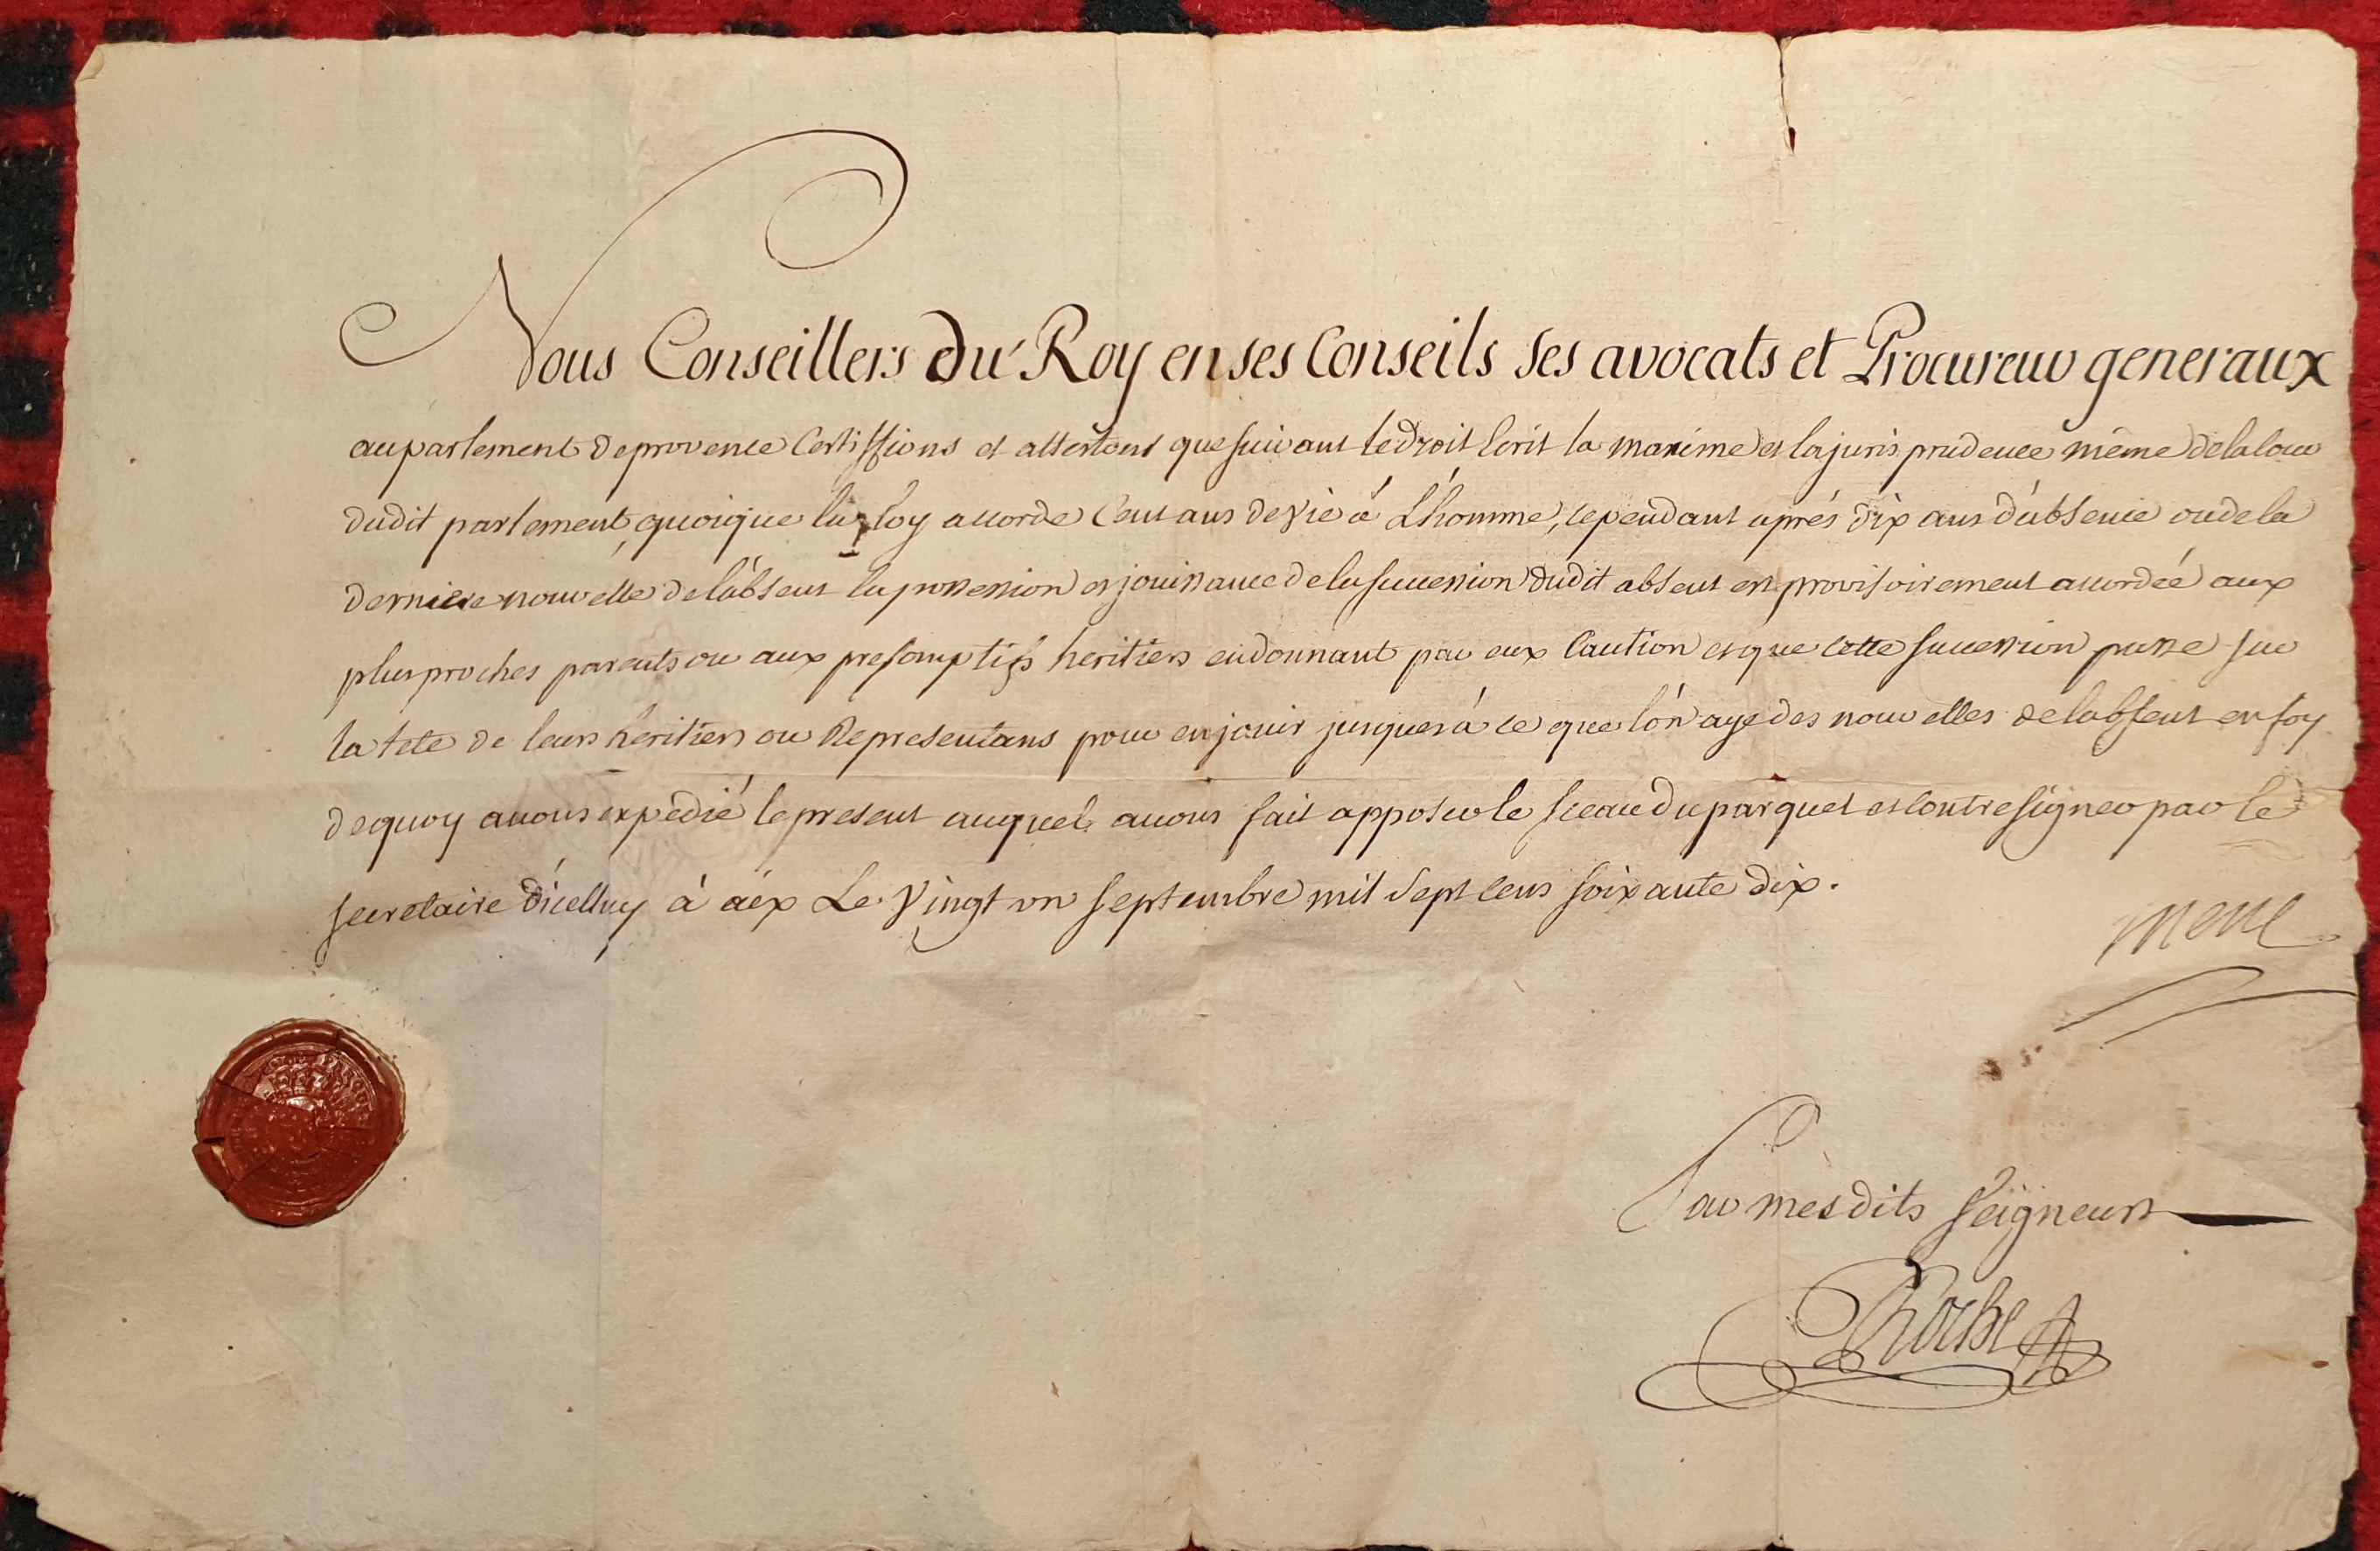 Nous Conseillers du Roy en ses Conseils ses avocats et Procureur generaux
au parlement de provence Certiffions et attestons que suivant le droit Ecrit la maxime et la juris prudence même de la Cour
dudit parlement, quoique la loy accorde Cent ans de Vie à L'homme, cependant aprés dix ans d'absence ou de la
derniere nouvelle de l'absent la possession et jouissance de la succession dudit absent est provisoirement accordée aux
plus proches parents ou aux presomptifs heritiers en donnant par eux Caution et que cette succession passe sur
la tete de leurs heritiers ou Representans pour en jouir jusques à ce que l'on aye des nouvelles de l'absent en foy
de quoy avons expédié le present auquel avons fait apposer le sceau du parquet et Contresigner par le
secretaire d'icelluy à aix Le Vingt un septembre mil sept cens soixante dix.
Par mesdits seigneurs
Roche